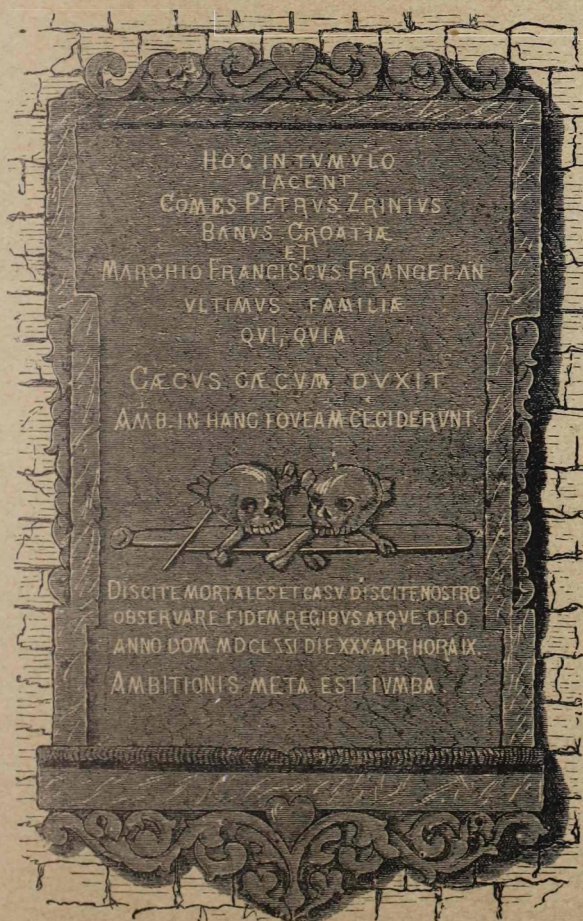 HOC IN TVMVLO
IACENT
COMES PETRVS ZRINIVS
BANVS CROATIÆ
ET
MARCHIO FRANCISCVS FRANGEPAN
VLTIMVS FAMILIÆ
QVI, QVIA
CÆCVS CÆCVM DVXIT
AMB. IN HANC FOVEAM CECIDERVNT.
DISCITE MORTALES ET CASV DISCITE NOSTRO
OBSERVARE FIDEM REGIBVS ATQVE DEO
ANNO DOM MDCLSSI DIE XXX APR HORA IX.
AMBITIONIS META EST TVMBA.